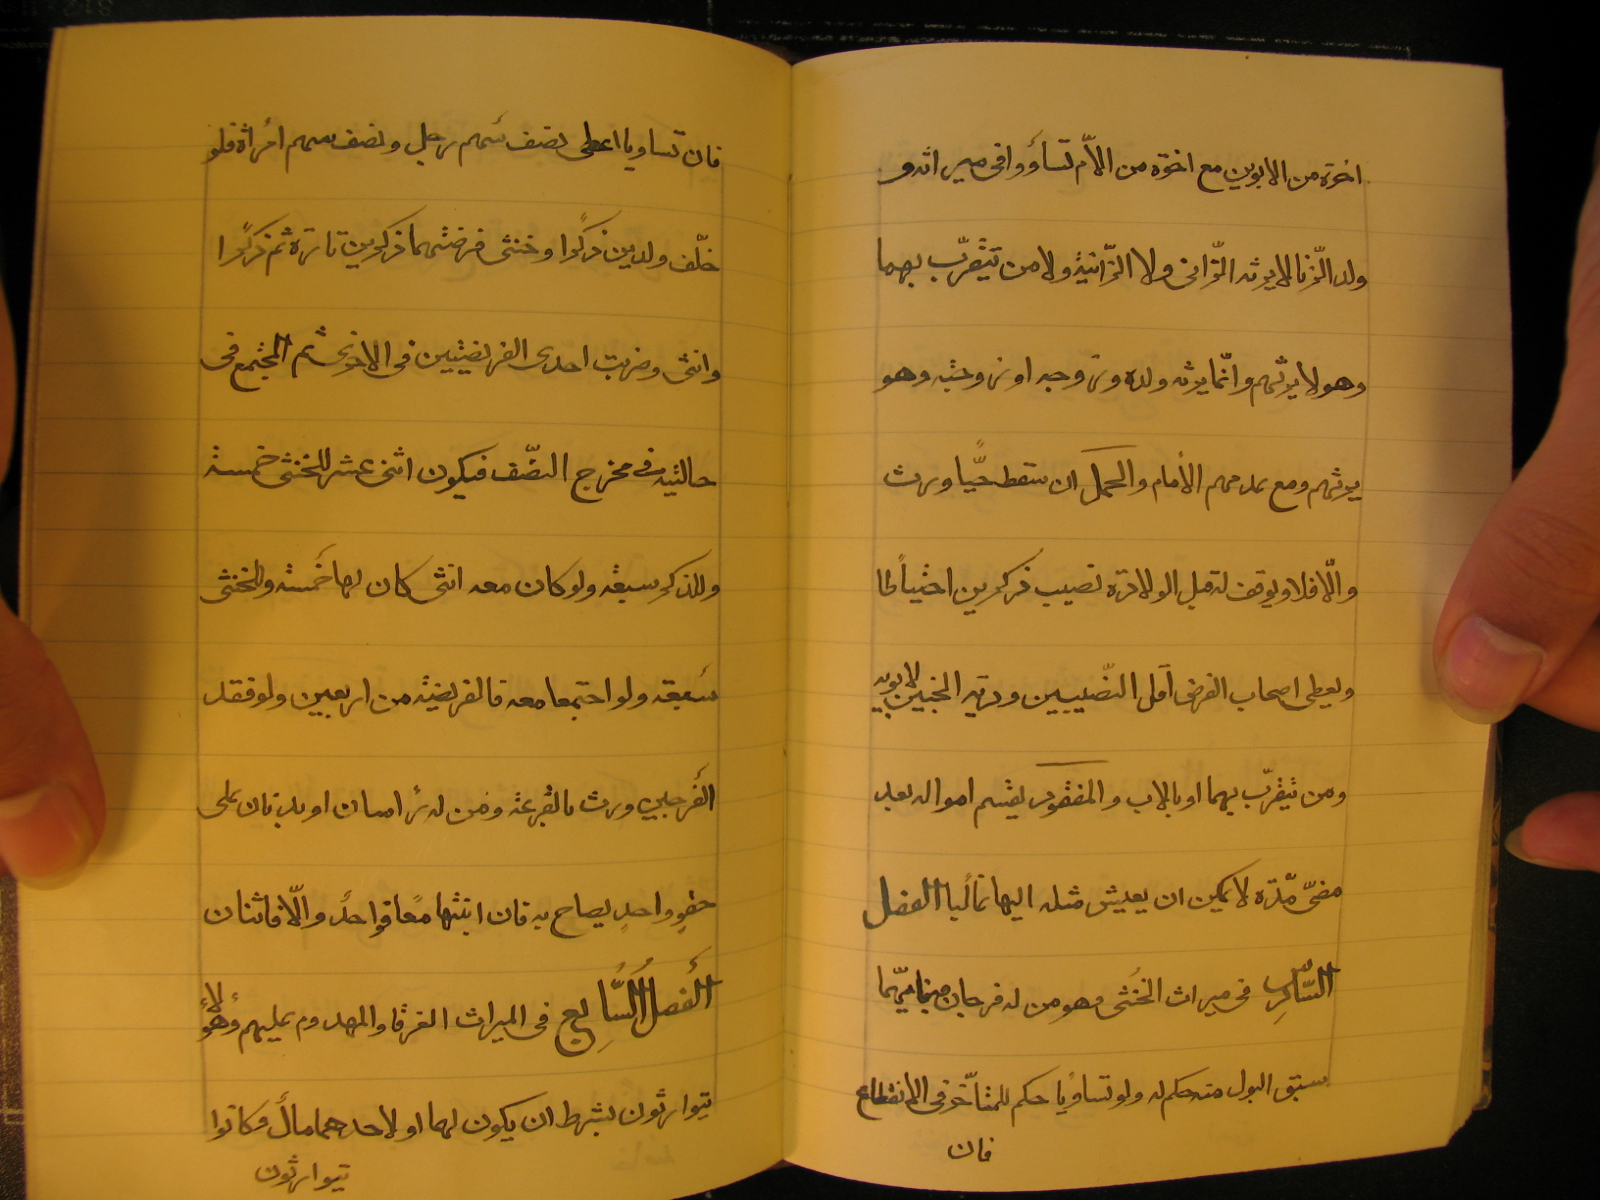 اخوة من الابوين مع اخوة من الاّم تساووا فى ميراثه و
ولد الزّنا لا يرثه الزّانى ولا الزّانية ولا من تيقرّب بهما
وهو لا يرثهم وانّما يرثه ولده وزوجه او زوجته وهو
يرثهم ومع عدمهم الأمام والحمل ان سقط حيًّا ورث
والّا فلا ويوقف له قبل الولادة نصيب ذكرين احتياطا
ويعطى اصحاب الفرض اقل النّصيبين ودية الجنين لابويه
ومن تيقرّب بهما او بالاب والمفقود يقسم امواله بعد
مضىّ مدّة لا يمكن ان يعيش مثله اليها غالبا الفصل
السّادس فى ميراث الخنثى وهو من له فرجان فبايّهما
سبق البول منه حكم له ولو تساويا حكم للمتأخّر فى الانقطاع
فان
فان تساويا اعطى نصف سهم رجل ونصف سهم امراة فلو
خلّف ولدين ذكرا وخنثى فرضتهما ذكرين تارة ثم ذكرا
وانثى وضربت احدى الفريضتين فى الاخرى ثم المجتمع فى
حالتيه فى مخرج النصّف فيكون اثنى عشر للخنثى خمسة
وللذكر سبعة ولو كان معه انثى كان لها خمسة وللخنثى
سبعة ولو اجتمعا معه فالفريضة من اربعين ولو فقد
الفرجين ورث بالقرعة ومن له راسان او بدنان على
حقو واحدٍ يصاح به فان انتبها معًا فواحدٌ والّا فاثنان
الفصل السّابع فى الميراث الغرقا والمهدوم عليهم وهؤلاء
تيوارثون بشرط ان يكون لهما او لاحدهما مالٌ وكانوا
تيوارثون